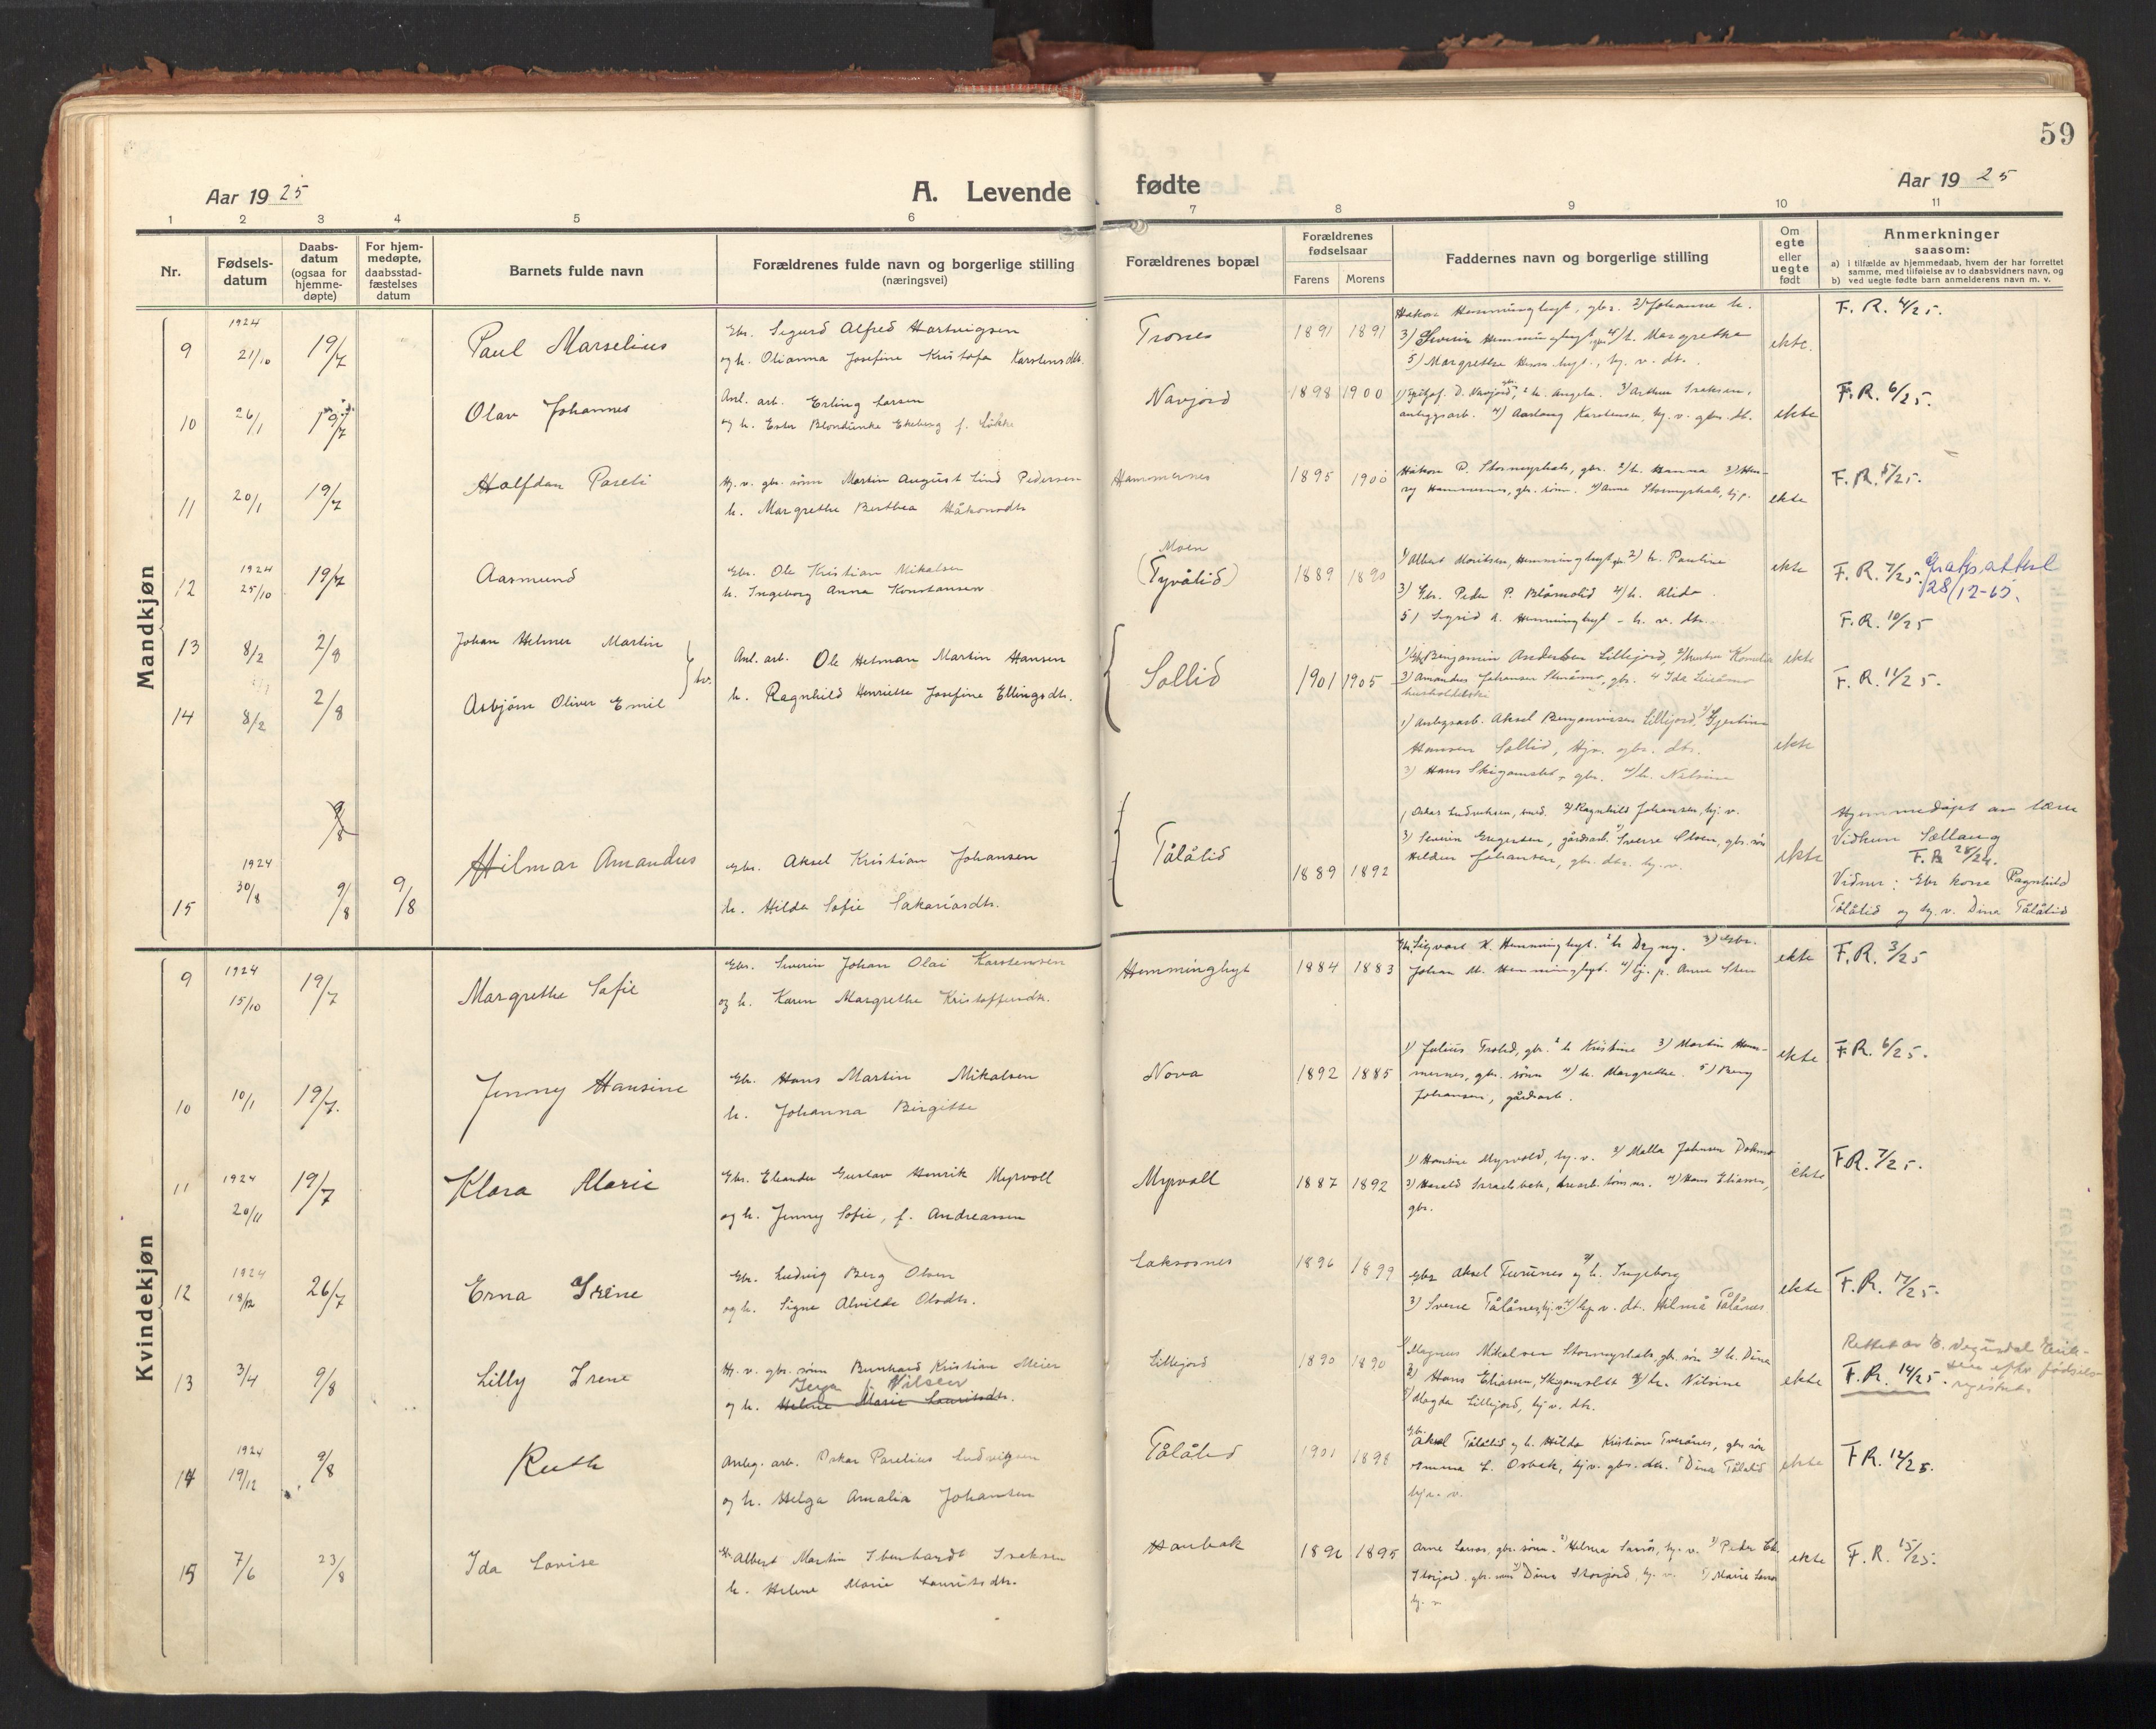 59
Aar 1925
A. Levende fødte
Aar 1925
1 2 3 4 5 6 7 8 9 10 11
Nr.
Fødsels-
datum
Daabs-
datum
(ogsaa for
hjemme-
døpte)
For hjem-
medøpte,
daabsstad-
fæstelses
datum
Barnets fulde navn
Forældrenes fulde navn og borgerlige stilling
(næringsvei)
Forældrenes bopæl
Forældrenes
fødselsaar
Farens Morens
Faddernes navn og borgerlige stilling
Om
egte
eller
uegte
født
Anmerkninger
saasom:
a) i tilfælde av hjemmedaab, hvem der har forrettet
samme, med tilføielse av to daabsvidners navn, og
b) ved uegte fødte barn anmelderens navn m. v.
Mandkjøn
9 1924 21/10 19/7 Paul Marselius
Gbr. Sigurd Alfred Hartvigsen
og h. Olianna Josefine Kristofa Karstensdtr.
Trones 1891 1891
Håkon Hemminghyt, gbr. 2) Johanna h.
3) Severin Hemminghyt, gbr. 4) h. Margrethe
5) Margrethe Hemminghyt., hj. v. dtr.
ekte. F. R. 4/25.
10 26/1 19/7 Olav Johannes
Anl. arb. Erling Larsen
og h. Ester Blondine Ekeberg f. Løkke
Navjord 1898 1900
D. Navjord, 2 h. Angela. 3) Arthur Iraksen,
anleggsarb. 4) Aaslaug Karstensen, hj. v. gbr. dt.
ekte F. R. 6/25.
11 20/1 19/7 Halfdan Pareli
Hj. v. gbr. sønn Martin August Lind Pedersen
h. Margrethe Berthea Håkonsdtr
Hammernes 1895 1900
Håkon P. Stormyrhals, gbr. 2) h. Hanna 3) Hen-
ry Hammernes, gbr. sønn. 4) Anne Stormyrhals, hj. p.
ekte F. R. 5/25.
12 1924 25/10 19/7 Aasmund
Gbr. Ole Kristian Mikalsen
h. Ingeborg Anna Konstansen
Moen
(Tyvålid) 1889 1890
1) Albert Moritsen, Hemminghyt, gbr. 2) h. Pauline
3) Gbr. Peder P. Blåmolid 4) h. Alida.
5) Sigrid A. Hemminghyt - h. v. dtr.
ekte F. R. 7/25. Gratis attest
28/12-65.
13 8/2 2/8 Johan Helmer Martin
14 8/2 2/8 Asbjørn Oliver Emil
tv.
Anl. arb. Ole Helman Martin Hansen
h. Ragnhild Henriette Josefine Ellingsdtr.
Sollid 1901 1905
1) Gbr. Benjamin Andersen Lillejord, 2) hustru Kornelia
3) Amandus Johansen Stenåmo, gbr. 4 Ida
husholderske
ekte F. R. 10/25
F. R. 11/25.
1) Anlegsarb. Aksel Benjaminsen Lillejord, 2) Gjertine
Hansen Sollid, Hjv. gbr. dtr.
3) Hans Skigamslet, gbr. 4) h. Nilsine
ekte
9/8
15 1924 30/8 9/8 9/8 Hilmar Amandus
Gbr. Aksel Kristian Johansen
h. Hilda Sofie Sakariasdtr.
Tålålid 1889 1892
1) Oskar Ludviksen, smed. 2) Ragnhild Johansen, hj. v.
3) Severin Gregersen, gårdsarb. 4) Sverre Olsen, gbr. søn
Hildur Johansen, gbr. dtr. hj. v.
ekte
Hjemmedøpt av lærer
Vidkun Sælland
F. R 28/24.
Vidner: Gbr kone Ragnhild
Tålålid og hj. v. Dina Tålålid
Kvindekjøn
9 1924 15/10 19/7 Margrethe Sofie
Gbr. Severin Johan Olai Karstensen
og h. Karen Margrethe Kristoffersdtr.
Hemminghyt 1884 1883
Gbr. Sigvart K. Hemminghyt. 2 h Dagny. 3) Gbr.
Johan M. Hemminghyt. 4) hj. p. Anne Sten
ekte F. R. 3/25
10 10/1 19/7. Jenny Hansine
Gbr. Hans Martin Mikalsen
h. Johanna Birgitte
Nova 1892 1885
1) Julius Trolid, gbr. 2 h Kristine 3) Martin Ham-
mernes, gbr. sønn 4) h. Margrethe. 5) Berg
Johansen, gårdsarb.
ekte F. R. 6/25.
11 1924 20/11 19/7 Klara Marie
Gbr. Eleander Gustav Henrik Myrvoll
og h. Jenny Sofie, f. Andreassen
Myrvoll 1887 1892
1) Hansine Myrvold, hj. v. 2) Malla Johnsen Dokmo
3) Harald Israelsbak, 4) Hans Eliassen,
gbr.
ekte F. R. 7/25.
12 1924 18/12 26/7 Erna Irene
Gbr. Ludvig Berg Olsen
og h. Signe Alvilde Olsdtr.
Laksosnes 1896 1899
Gbr Aksel Furunes 2) og h. Ingeborg
3) Sverre Tålånes, hj. v. 4) hj. v. dt. Hilma Tålånes.
ekte F. R. 17/25.
13 3/4 9/8 Lilly Irene
Hj. v. gbr. sønn Bernhard Kristian Meier
Nilsen
og h. Helene Marie Lauritsdtr.
Lillejord 1890 1890
1) Magnus Nikalsen Stormyrhals, gbr. søn 2) h. Dina
3) Hans Eliasen, Skigamslet 4) h. Nilsine
5) Magda Lillejord, hj. v. dtr.
ekte F. R. 14/25.
14 1924 19/12 9/8 Ruth
Anleg. arb. Oskar Parelius Ludvigsen
og h. Helga Amalia Johansen
Tålålid 1901 1898
Gbr.
Aksel Tålålid og h. Hilda Kristian Tverånes, gbr. søn
Emma L. Osbak, hj. v. gbr. dtr. Dina Tålålid
hj. v.
ekte F R. 12/25.
15 7/6 23/8 Ida Lovise
Gbr. Albert Martin Ibenhardt Iraksen
h. Helene Marie Lauritsdtr.
Haubak 1896 1895
Arne Lasos, gbr. sønn. 2) Helmea Lasos, hj. v. 3) Peder
Storjord. gbr. sønn 4) Dina Storjord, hj. v. 5) Marie Lasos
hj. v.
ekte F. R. 15/25.